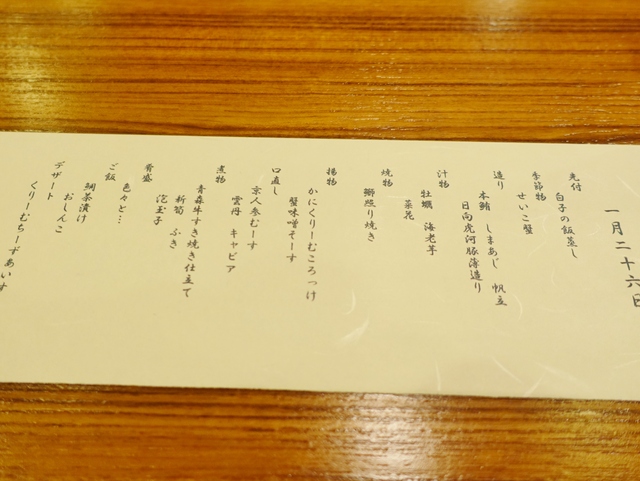 一月二十六日
先付
白子の飯蒸し
季節物
せいこ蟹
造り
本鮪 しまあじ 帆立
日向虎河豚薄造り
汁物
牡蠣 海老芋
菜花
焼物
鰤照り焼き
揚物
かにくりーむころっけ
蟹味噌そーす
口直し
京人参むーす
雲丹 キャビア
煮物
青森牛すき焼き仕立て
新筍 ふき
泡玉子
肴盛
色々と…
ご飯
鯛茶漬け
おしんこ
デザート
くりーむちーずあいす